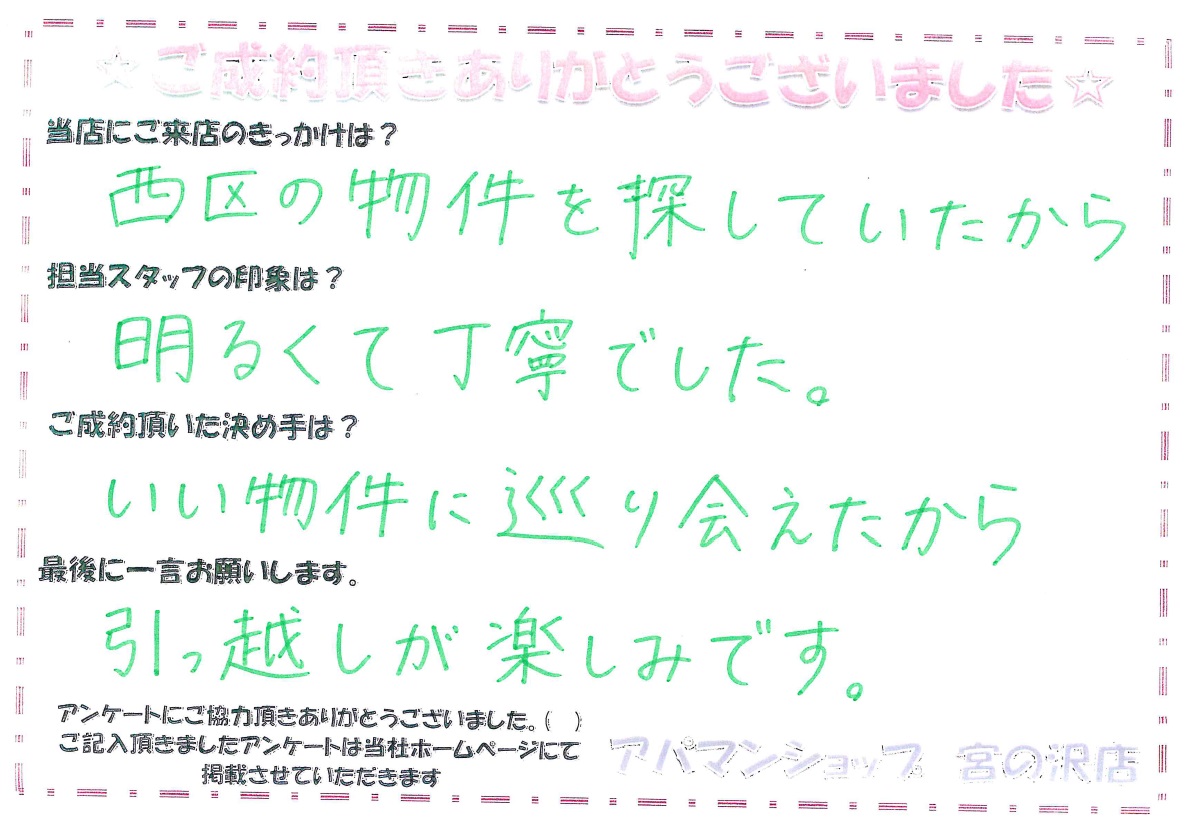 ☆ご成約頂きありがとうございました☆
当店にご来店のきっかけは？
西区の物件を探していたから
担当スタッフの印象は？
明るくて丁寧でした。
ご成約頂いた決め手は？
いい物件に巡り会えたから
最後に一言お願いします。
引っ越しが楽しみです。
アンケートにご協力頂きありがとうございました。(　)
ご記入頂きましたアンケートは当社ホームページにて
掲載させていただきます
アパマンショップ 宮の沢店